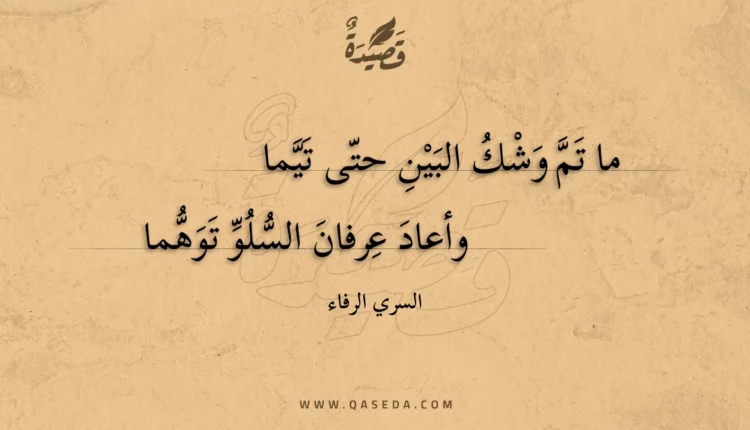 قَصِيْدَةٌ
ما تَمَّ وَشْكُ البَيْنِ حتّى تَيَّما
وأعادَ عِرفانَ السُّلُوِّ تَوَهُّما
السري الرفاء
WWW.QASEDA.COM